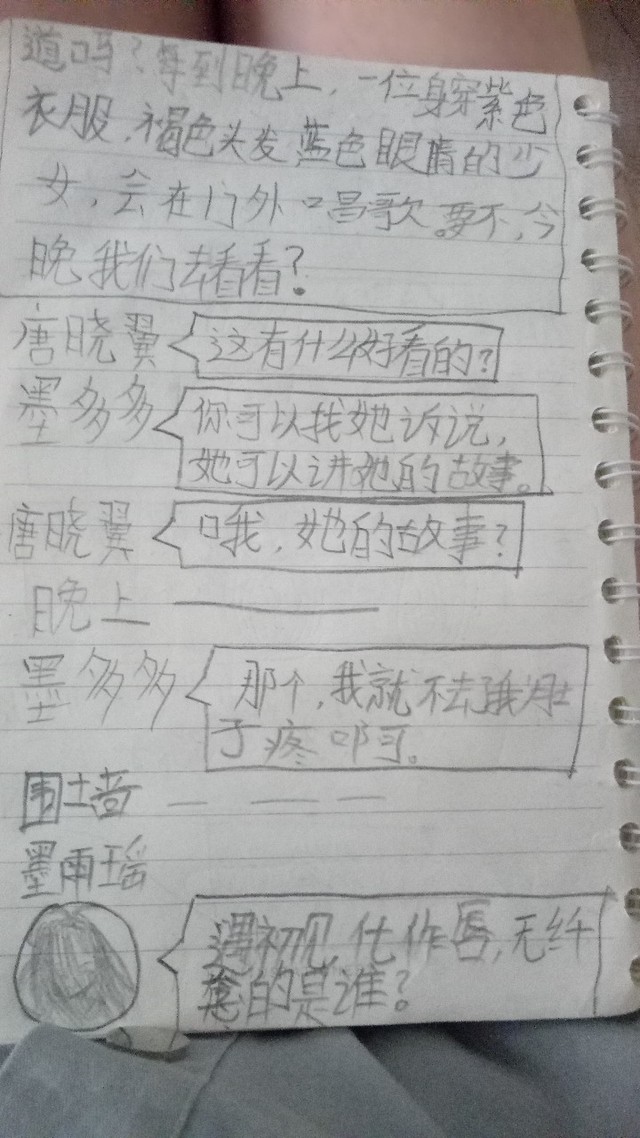 道吗？每到晚上，一位身穿紫色
衣服，褐色头发，蓝色眼睛的少
女，会在门外唱歌。要不，今
晚我们去看看？
唐晓翼
这有什么好看的？
墨多多
你可以找她诉说，
她可以讲她的故事。
唐晓翼
哦，她的故事？
晚上
墨多多
那个，我就不去了，我肚
子疼啊。
围墙
墨雨瑶
遇初见，化作唇，无纤
的是谁？